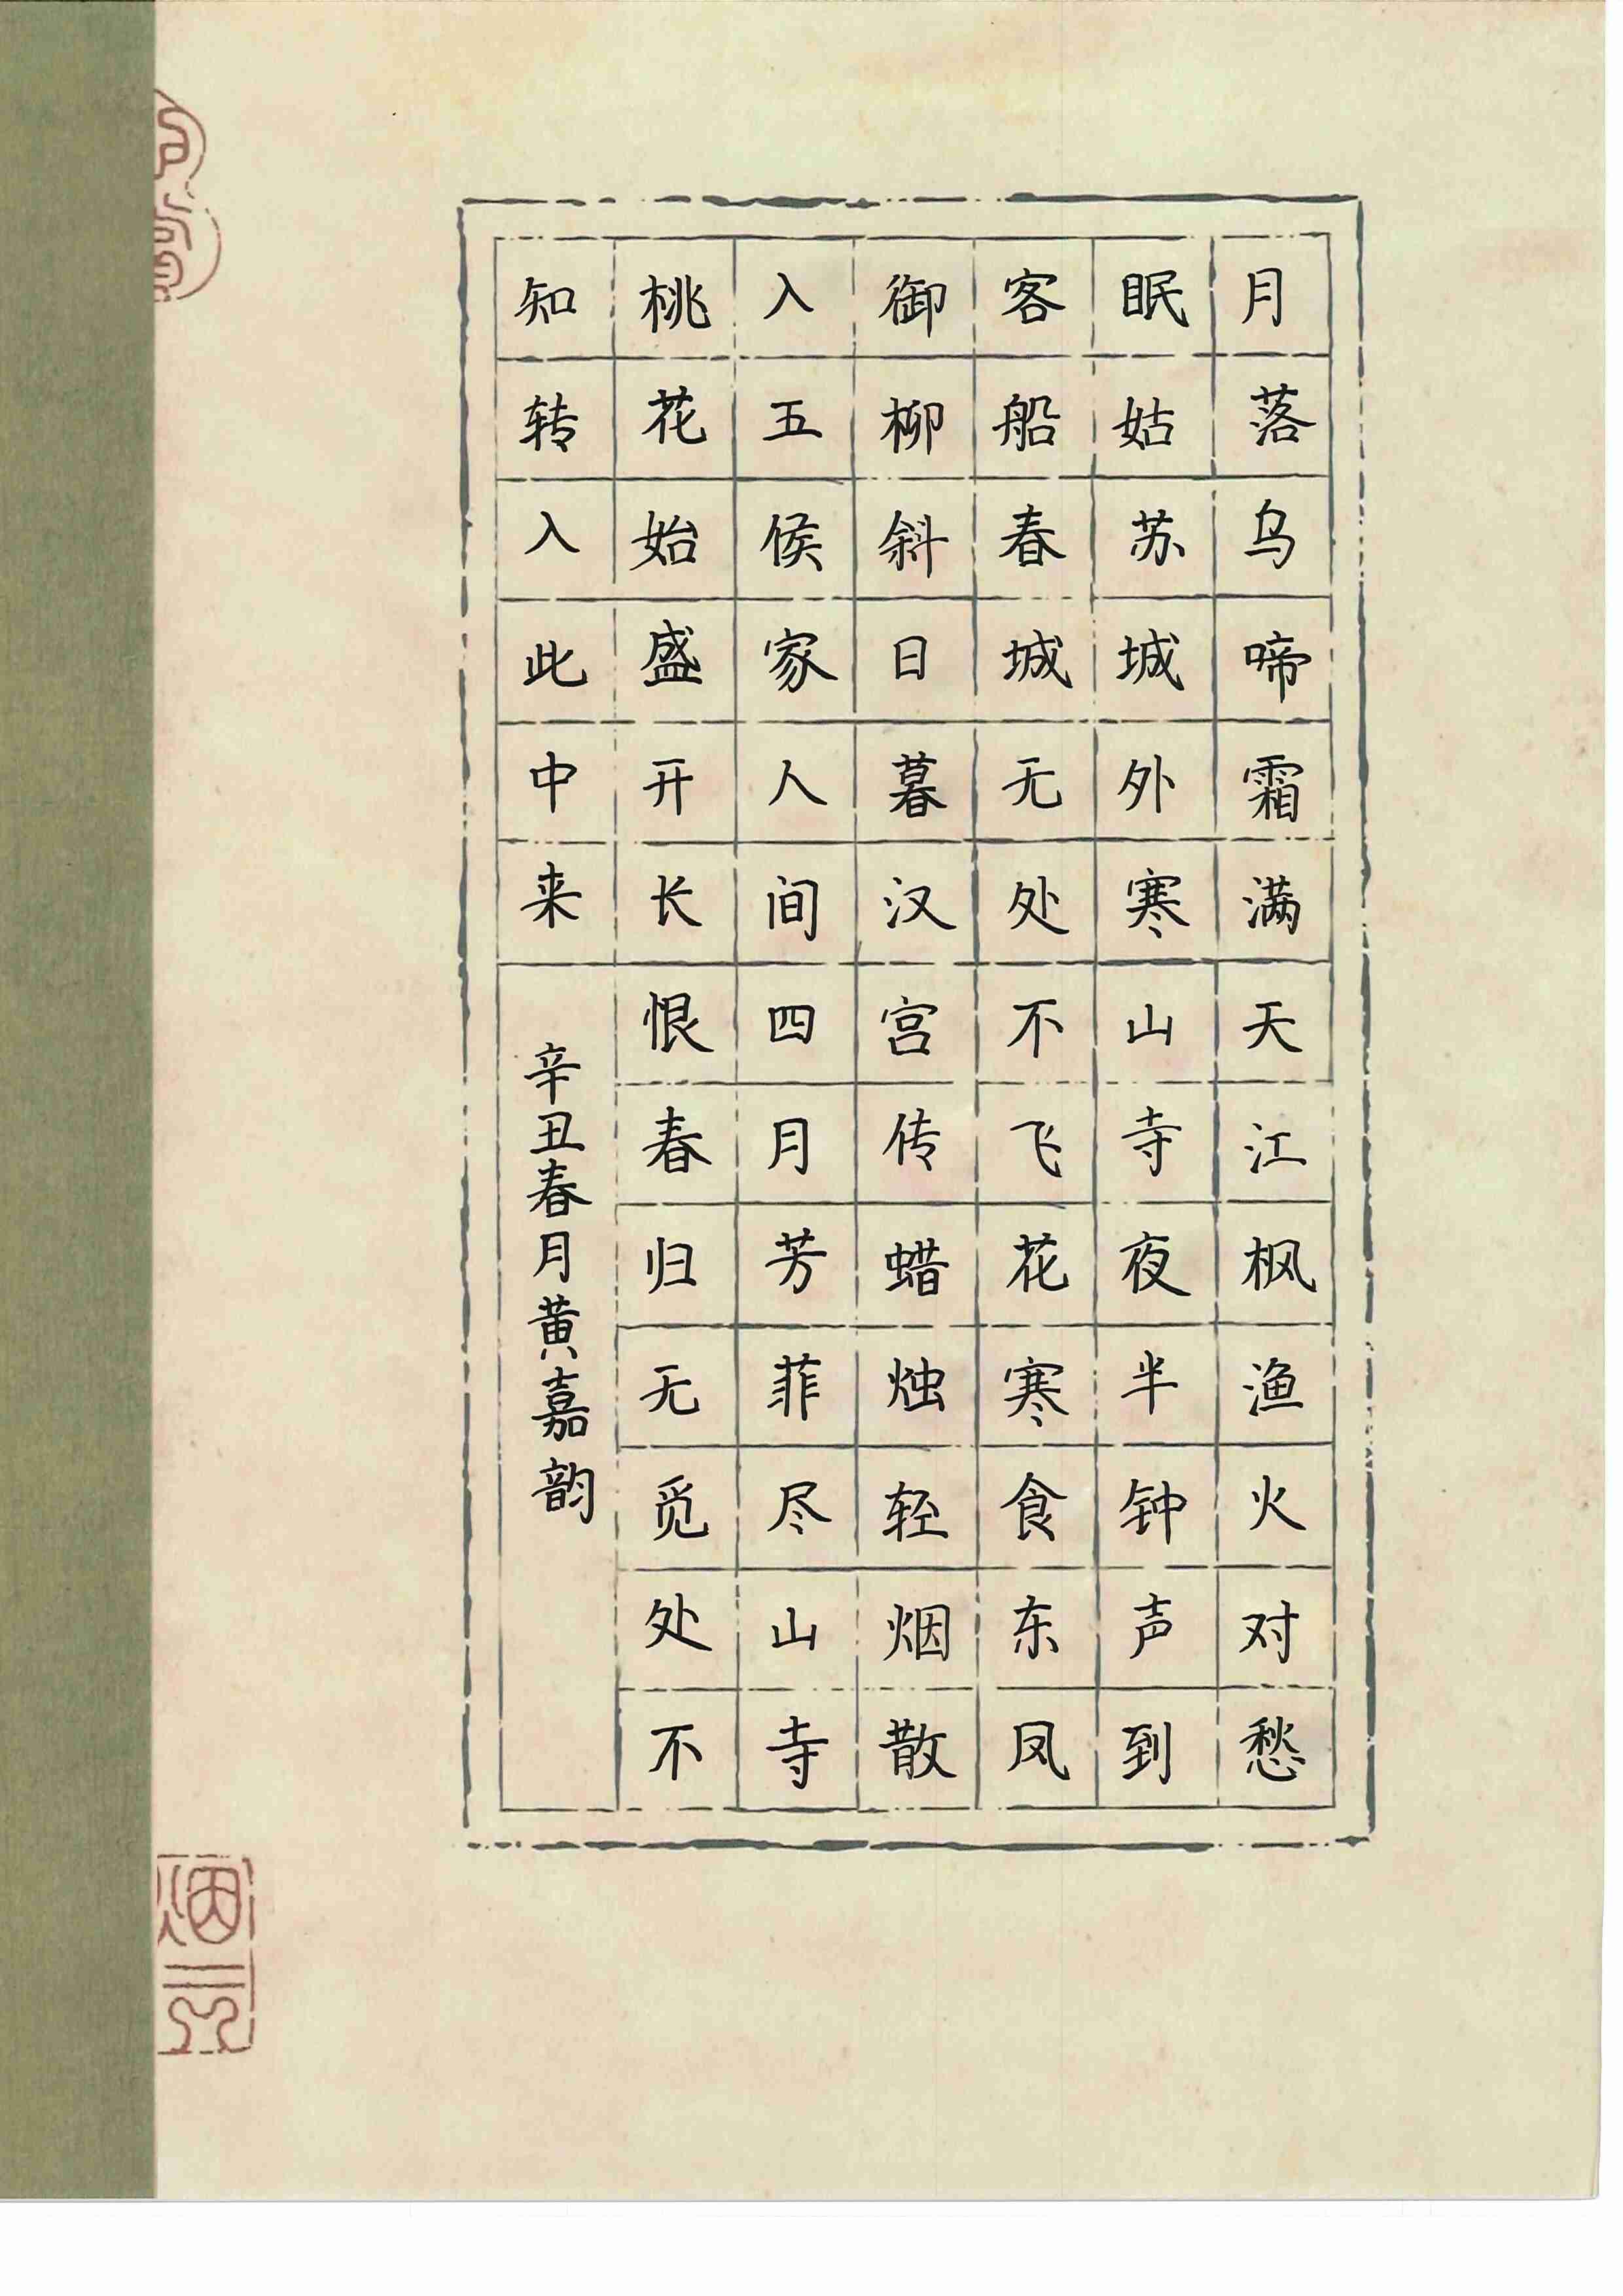 月落乌啼霜满天江枫渔火对愁
眠姑苏城外寒山寺夜半钟声到
客船春城无处不飞花寒食东凤
御柳斜日暮汉宫传蜡烛轻烟散
入五侯家人间四月芳菲尽山寺
桃花始盛开长恨春归无觅处不
知转入此中来
辛丑春月黄嘉韵